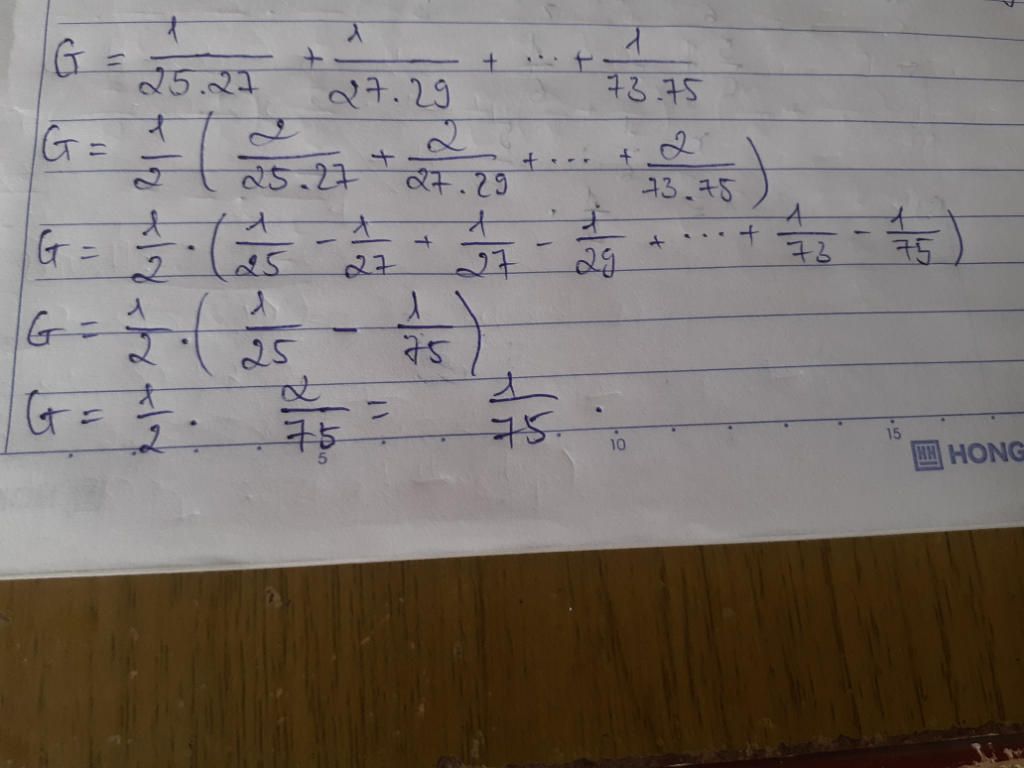 G = 1/25.27 + 1/27.29 + ... + 1/73.75
G = 1/2 ( 2/25.27 + 2/27.29 + ... + 2/73.75 )
G = 1/2 . ( 1/25 - 1/27 + 1/27 - 1/29 + ... + 1/73 - 1/75 )
G = 1/2 . ( 1/25 - 1/75 )
G = 1/2 . 2/75 = 1/75 .
5 10 15
HH HONG